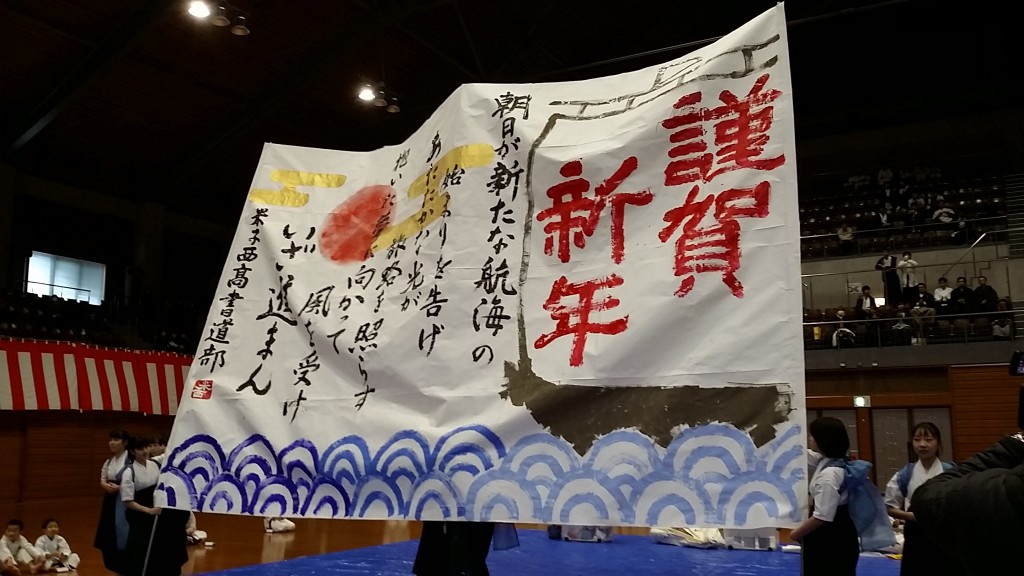 謹賀
新年
朝日が新たな航海の
始まりを告げ
あたたかな光が
を照らす
に向かって
風を受け
進まん
米子西高書道部